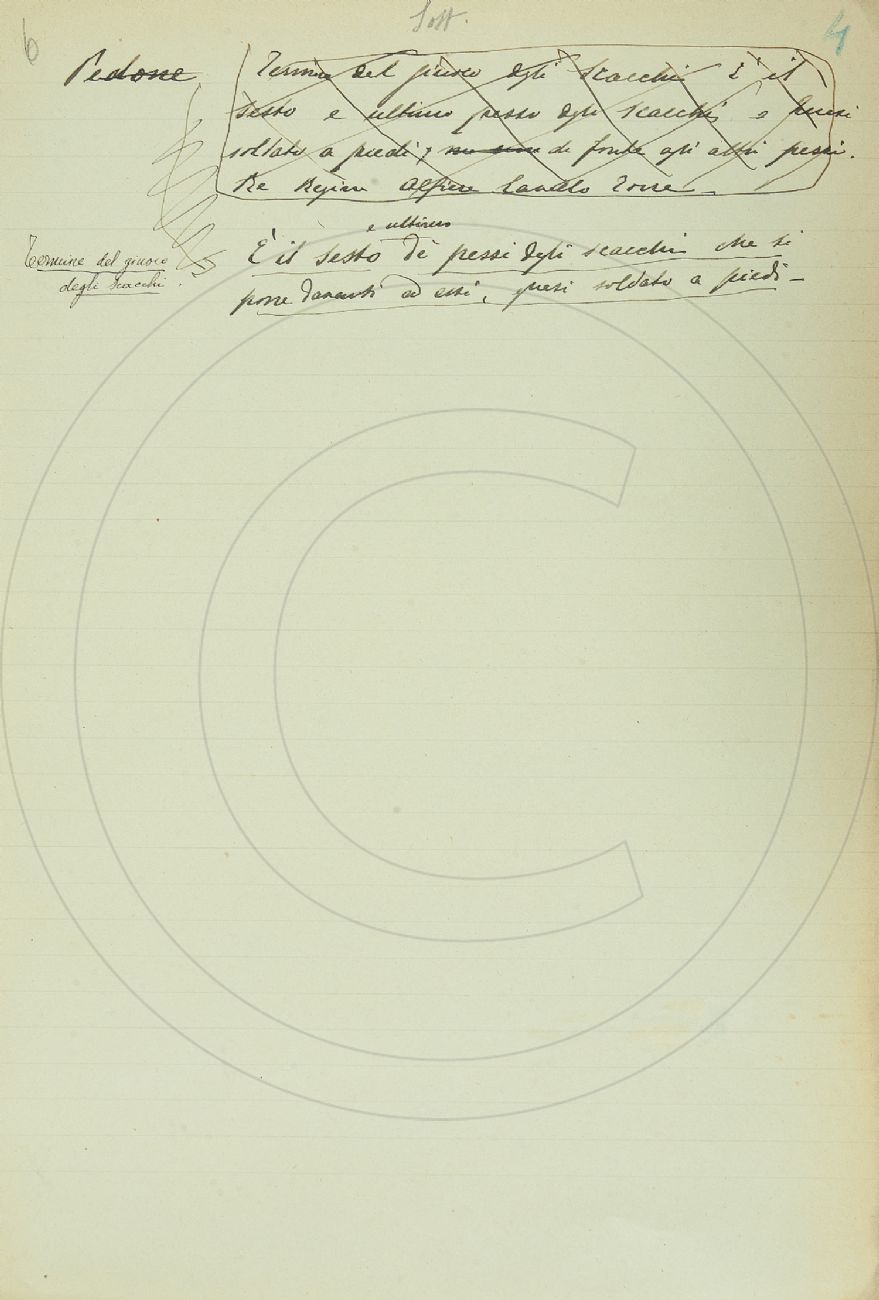 6
Sott.
4
Pedone
Termine del giuoco degli scacchi È il
sesto e ultimo pezzo degli scacchi e quasi
soldato a piedi, di fronte agli altri pezzi.
Re Regina Alfiere Cavallo Torre
e ultimo
È il sesto de' pezzi degli scacchi che si
pone davanti ad essi, quasi soldato a piedi
Termine del giuoco
degli scacchi.